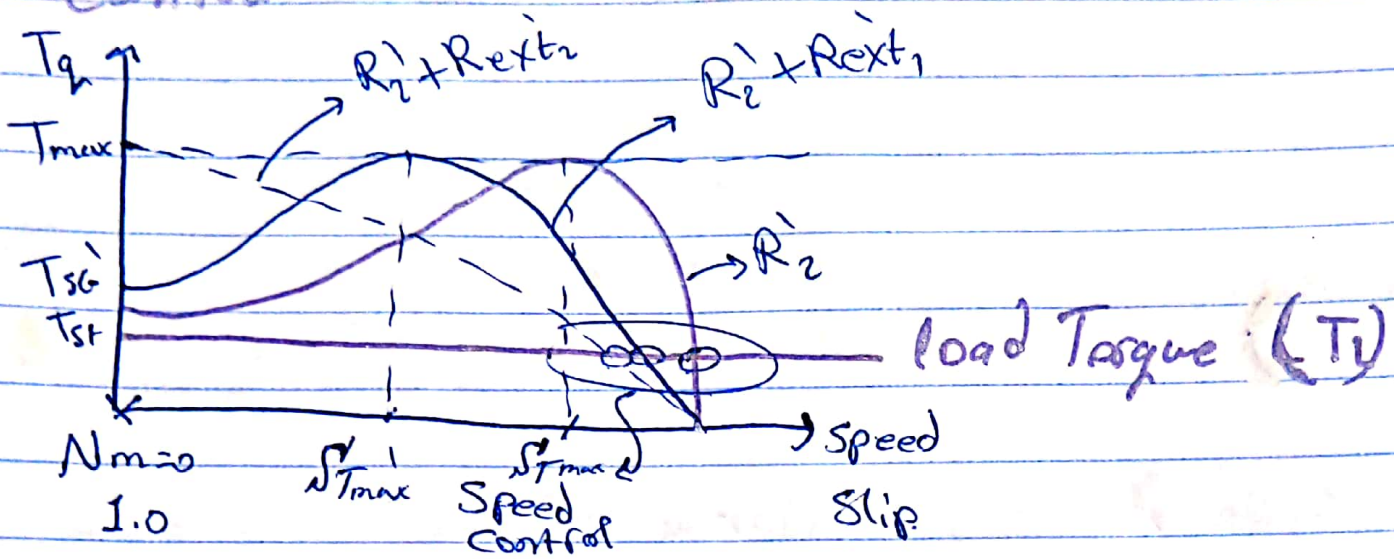 Tq
R2'+R'ext2
R2'+R'ext1
Tmax
R2'
Tst'
Tst
load Torque (TL)
Speed
Nm=0
S'Tmax
STmax
Speed
control
1.0
Slip